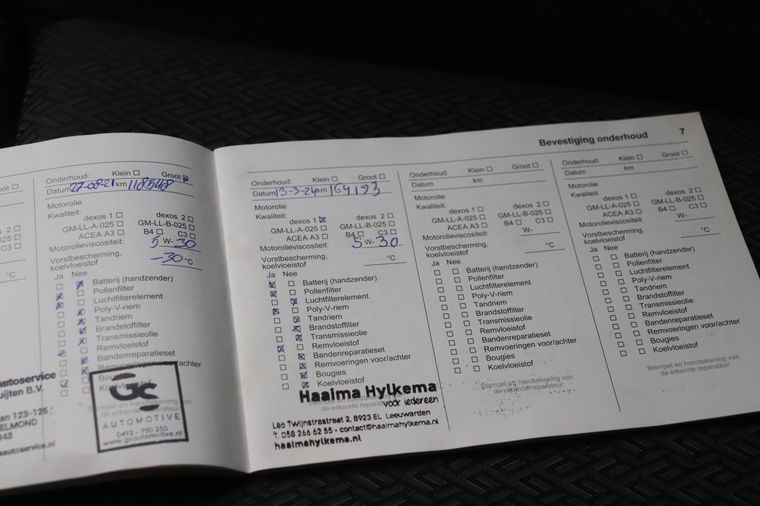 Bevestiging onderhoud 7
Groot
dexos 2
GM-LL-B-025
C3
°C
autoservice
uijten B.V.
an 123-125
ELMOND
348
sautoservice.nl
Onderhoud: Klein Groot
Datum 27-08-21 km 118548
Motorolie
Kwaliteit:
dexos 1 dexos 2
GM-LL-A-025 GM-LL-B-025
ACEA A3 B4 C3
Motorolieviscositeit: 5 W- 30
Vorstbescherming,
koelvloeistof -30 °C
Ja Nee
Batterij (handzender)
Pollenfilter
Luchtfilterelement
Poly-V-riem
Tandriem
Brandstoffilter
Transmissieolie
Remvloeistof
Bandenreparatieset
Remvoeringen voor/achter
Bougies
Koelvloeistof
Stempel en handtekening van
de erkende reparateur
GS
AUTOMOTIVE
0493-700 210
www.gsautomotive.nl
Onderhoud: Klein Groot
Datum 13-3-24 km 164193
Motorolie
Kwaliteit:
dexos 1 dexos 2
GM-LL-A-025 GM-LL-B-025
ACEA A3 B4 C3
Motorolieviscositeit: 5 W- 30
Vorstbescherming,
koelvloeistof °C
Ja Nee
Batterij (handzender)
Pollenfilter
Luchtfilterelement
Poly-V-riem
Tandriem
Brandstoffilter
Transmissieolie
Remvloeistof
Bandenreparatieset
Remvoeringen voor/achter
Bougies
Koelvloeistof
Haaima Hylkema
voor iedereen
de erkende reparateur
Leo Twijnstrastraat 2, 8923 EL Leeuwarden
T. 058 266 62 55 - contact@haaimahylkema.nl
haaimahylkema.nl
Onderhoud: Klein Groot
Datum km
Motorolie
Kwaliteit:
dexos 1 dexos 2
GM-LL-A-025 GM-LL-B-025
ACEA A3 B4 C3
Motorolieviscositeit: W-
Vorstbescherming,
koelvloeistof °C
Ja Nee
Batterij (handzender)
Pollenfilter
Luchtfilterelement
Poly-V-riem
Tandriem
Brandstoffilter
Transmissieolie
Remvloeistof
Bandenreparatieset
Remvoeringen voor/achter
Bougies
Koelvloeistof
Stempel en handtekening van
de erkende reparateur
Onderhoud: Klein Groot
Datum km
Motorolie
Kwaliteit:
dexos 1 dexos 2
GM-LL-A-025 GM-LL-B-025
ACEA A3 B4 C3
Motorolieviscositeit: W-
Vorstbescherming,
koelvloeistof °C
Ja Nee
Batterij (handzender)
Pollenfilter
Luchtfilterelement
Poly-V-riem
Tandriem
Transmissieolie
Remvloeistof
Brandstoffilter
Bandenreparatieset
Remvoeringen voor/achter
Bougies
Koelvloeistof
Stempel en handtekening van
de erkende reparateur